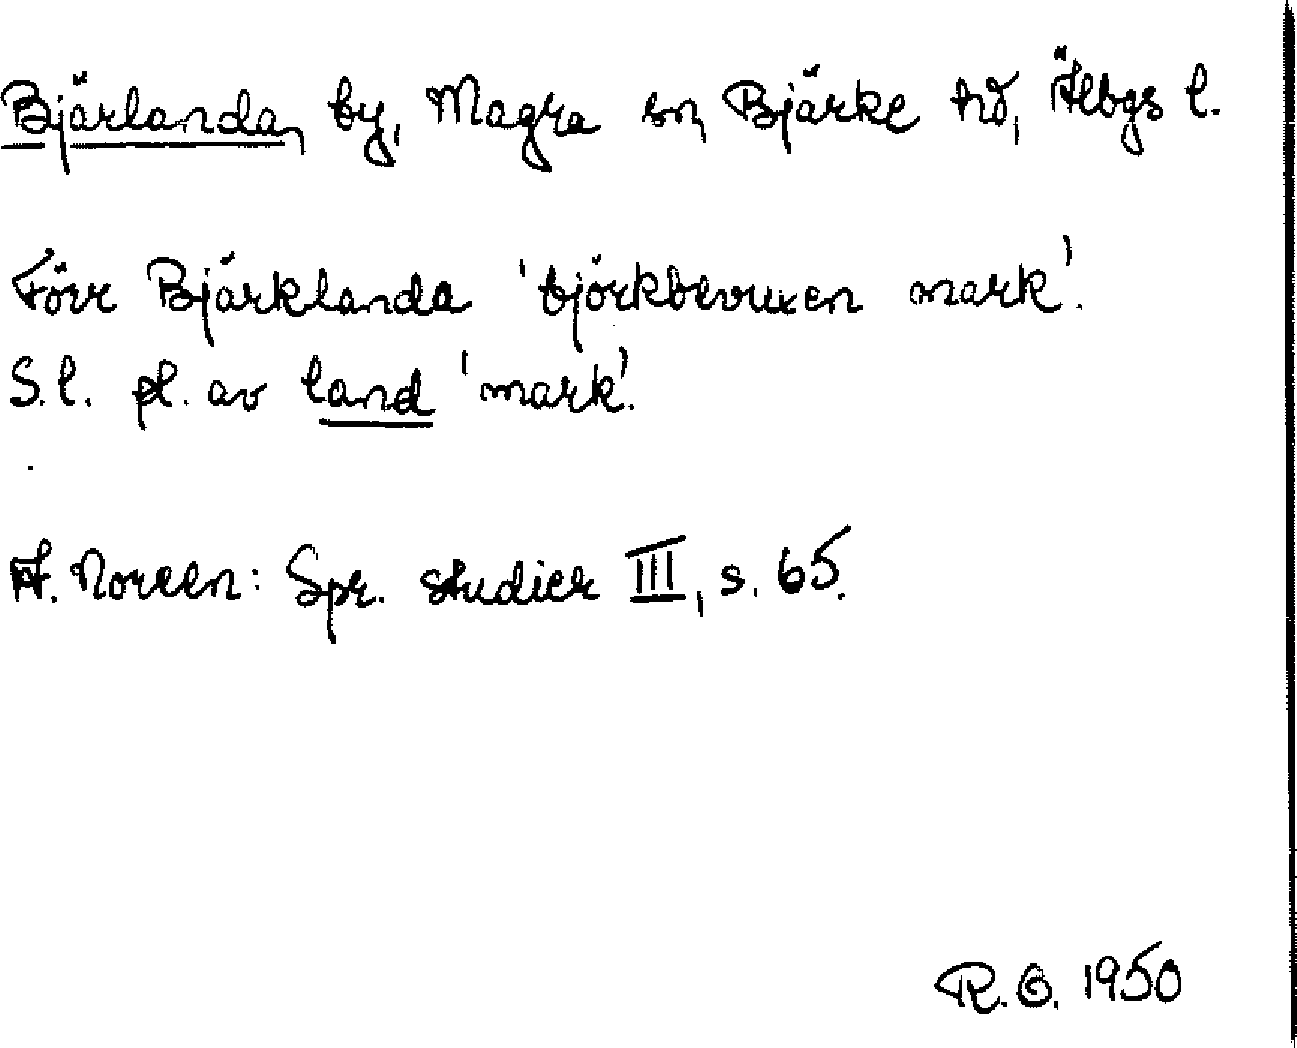 Bjärlanda, by, Magra sn, Bjärke hd, Älvbgs l.
Förr Bjärklanda 'björkbevuxen mark'.
S.l. pl. av land 'mark'.
A. Noreen: Spr. studier III, s. 65.
R.G. 1950